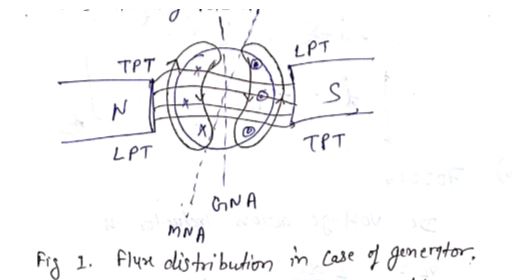 TPT
LPT
N
S
LPT
TPT
GNA
MNA
Fig 1. Flux distribution in case of generator.